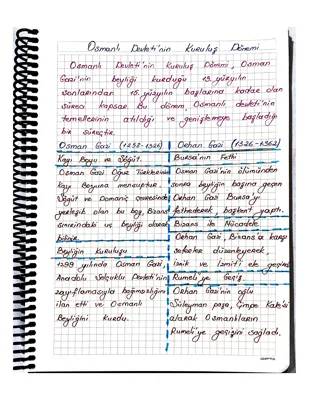 Osmanlı Devleti'nin Kuruluş Dönemi
Osmanlı Devleti'nin Kuruluş Dönemi, Osman
Gazi'nin beyliği kurduğu 13. yüzyılın
sonlarından 15. yüzyılın başlarına kadar olan
süreci kapsar. Bu dönem, Osmanlı devleti'nin
temellerinin atıldığı ve genişlemeye başladığı
bir süreçtir.
Osman Gazi (1258-1326)
Kayı Boyu ve Söğüt.
Osman Gazi Oğuz Türklerinin
Kayı Boyuna mensuptur.
Söğüt ve Domaniç çevresinde
yerleşik olan bu boy, Bizans
sınırındaki uç beyliği olarak
bilinir.
Beyliğin Kuruluşu
1299 yılında Osman Gazi,
Anadolu Selçuklu Devleti'nin
zayıflamasıyla bağımsızlığını
ilan etti ve Osmanlı
Beyliğini kurdu.
Orhan Gazi (1326-1362)
Bursa'nın Fethi
Osman Gazi'nin ölümünden
sonra beyliğin başına geçen
Orhan Gazi Bursa'yı
fethederek, başkent yaptı.
Bizans ile Mücadele
Orhan Gazi, Bizans'a karşı
seferler düzenleyerek
İznik ve İzmit'i ele geçirdi
Rumeli'ye Geçiş.
Orhan Gazi'nin oğlu
Süleyman paşa, Çimpe Kalesi
alarak Osmanlıların
Rumeli'ye geçişini sağladı.